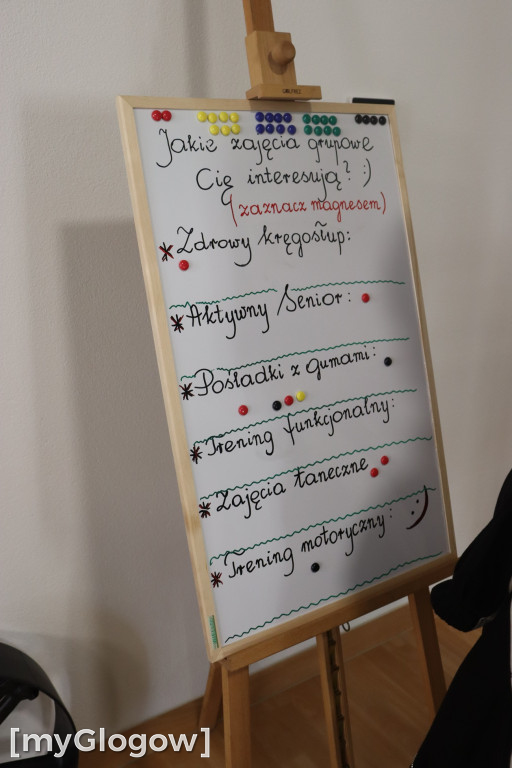 Jakie zajęcia grupowe
Cię interesują? :)
(zaznacz magnesem)
* Zdrowy kręgosłup:
* Aktywny Senior:
* Pośladki z gumami:
* Trening funkcjonalny:
* Zajęcia taneczne
* Trening motoryczny: :)
[myGlogow]